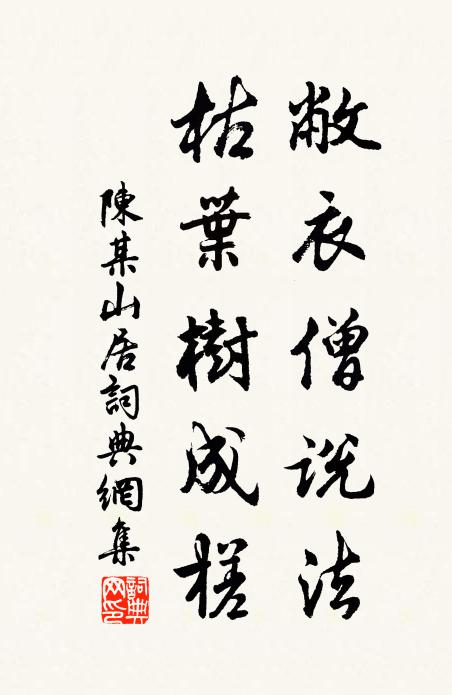 敝衣僧説法
枯葉樹成槎
陳某山居詞典網集
詞典網印